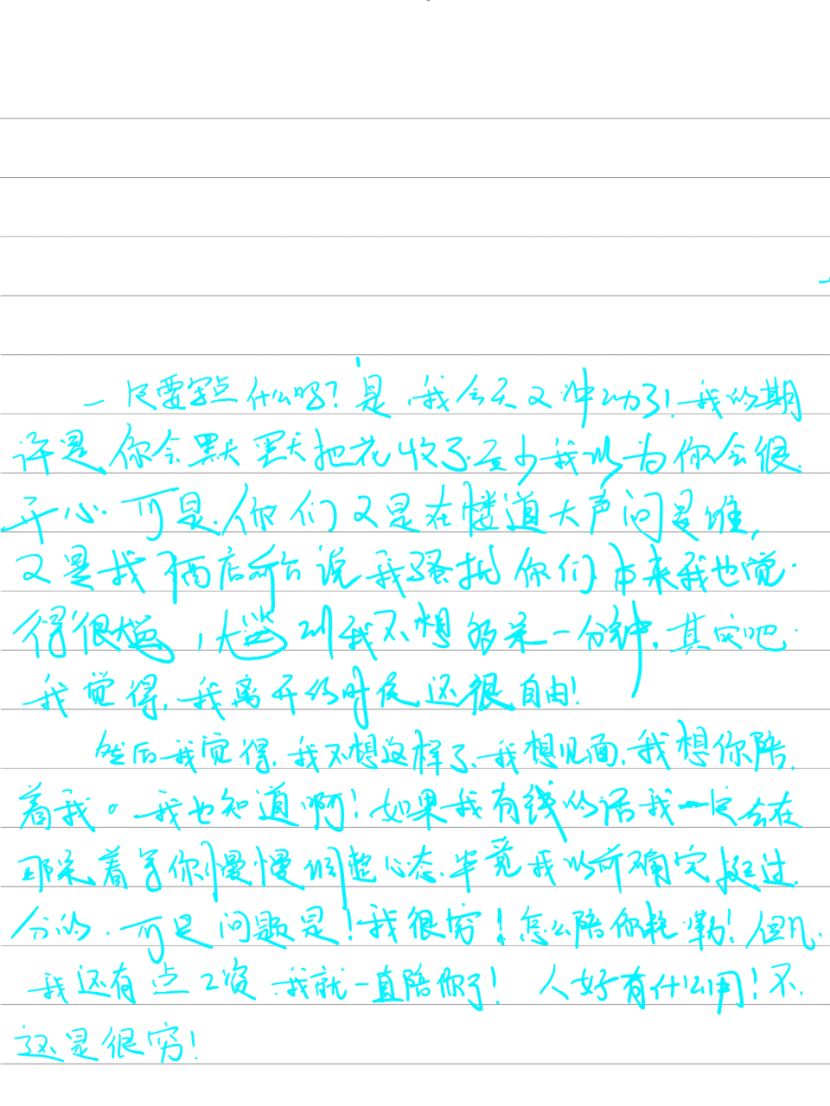 一定要写点什么吗?是,我今天又冲动了!我的期
许是,你会默默把花收了.至少我以为你会很
开心.可是.你们又是在楼道大声问是谁,
又是找酒店前台说我骚扰你们.本来我也觉
得很尴尬,叫我不想多呆一分钟.其实吧.
我觉得,我离开的时候还很自由!
然后我觉得.我不想这样了.我想见面.我想你陪
着我。我也知道啊!如果我有钱的话我一定会在
那呆着等你慢慢调整心态.毕竟我以前确实挺过
分的.可是问题是!我很穷!怎么陪你耗嘞!但凡.
我还有点工资.我就一直陪你了!人好有什么用!不.
还是很穷!